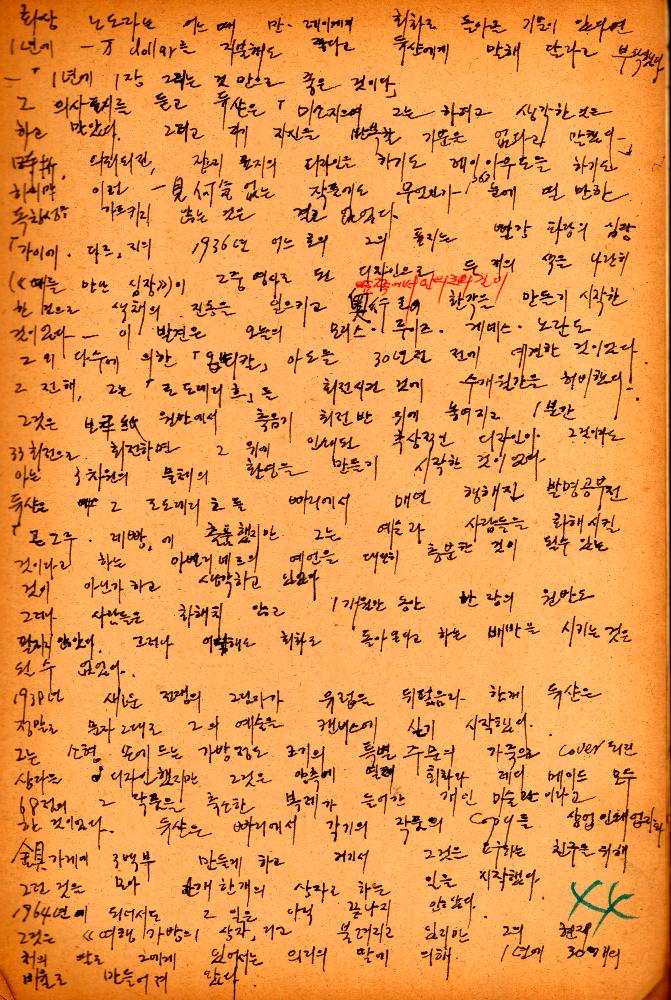 화상 노도라는 어느 때 만· 그에게 회화로 돌아올 기분이 있다면
1년에 一万 dollar를 지불해도 좋다고 듀샨에게 말해 달라고 부탁했다
—「1년에 1장 그리는 것 만으로 좋은 것이다」
그 의사표시를 듣고 듀샨은「미소지으며 그는 하려고 생각한 것은
하고 말았다. 그리고 자기 자신을 반복할 기분은 없다라고 말했다—」
때때로 의뢰되면, 잡지 표지의 디자인을 하기도 레이아우트를 하기도
하지만 이런 一見 없는 작품에도 무언가 눈에 띌 만한
독창성을 가르키지 않는 것은 결코 없었다.
「가이에. 다르」지의 1936년 어느 호의 그의 표지는 빨강 파랑의 심장
(《때는 만난 심장》)이 2중 영사로 된 디자인으로 두 개의 색은 나란히
한 것으로 색채의 진동을 일으키고 환각을 만들기 시작한
것이었다 — 이 발견은 오늘의 모리스· 루이즈· 케네스· 노란드
그 외 다수에 의한「옵티칼」아트를 30년전 전에 예견한 것이었다.
그 전해, 그는「로도레리흐」를 회전시킨 것에 수개월간을 허비했다—.
그것은 원반에서 축음기 회전반 위에 놓여지고 1분간
33회전으로 회전하면 그 위에 인쇄된 추상적인 디자인이 그것이라도
아는 3차원의 물체의 환영을 만들기 시작한 것이었다.
듀샨은 그 로도레리흐를 빠리에서 매년 행해진 발명공부전
「콩그루· 레빵」에 출품했지만 그는 예술과 사람들을 화해시킬
것이라고 하는 아뽀리네르의 예언을 대단히 충분한 것이 될 수 있는
것이 아닌가 하고 생각하고 있었다
그러나 사람들은 화해치 않고 1개월간 동안 한 장의 원반도
팔지 않았다. 그러나 어떻해도 회화로 돌아오라고 하는 배반을 시키는 것은
될 수 없었다.
1938년 새로운 전쟁의 그림자가 유럽을 뒤덮음과 함께 듀샨은
정말로 문자 그대로 그의 예술을 캔버스에 싣기 시작했다.
그는 소형 또에 드는 가방정도 크기의 특별 주문의 가죽으로 cover 되면
상자를 디자인했지만 그것은 안측에 열려 회화와 레디 메이드 모두
68점의 그 작품은 축소한 복제가 들어간 개인 미술관이라고
한 것이었다. 듀샨은 빠리에서 각기의 작품의 copy를 상업 인쇄업자와
가게에 3백부 만들게 하고 거기서 그것은 요구하는 친구를 위해
그런 것은 모아 한개 한개의 상자로 하는 일을 시작했다.
1964년에 되어서도 그 일은 아직 끝나지 않았다.
그것은 《여행 가방의 상자》라고 불려지고 있지만 그의 현재
처의 딸로 그에게 있어서는 의리의 딸에 의해 1년에 30개의
비율로 만들어져 왔다.